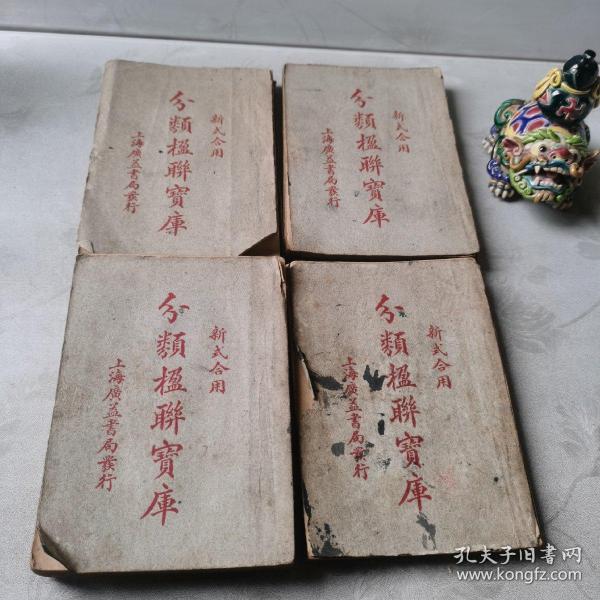 新式合用
分類楹聯寶庫
上海廣益書局發行
新式合用
分類楹聯寶庫
上海廣益書局發行
新式合用
分類楹聯寶庫
上海廣益書局發行
新式合用
分類楹聯寶庫
上海廣益書局發行
孔夫子旧书网
www.kongfz.com